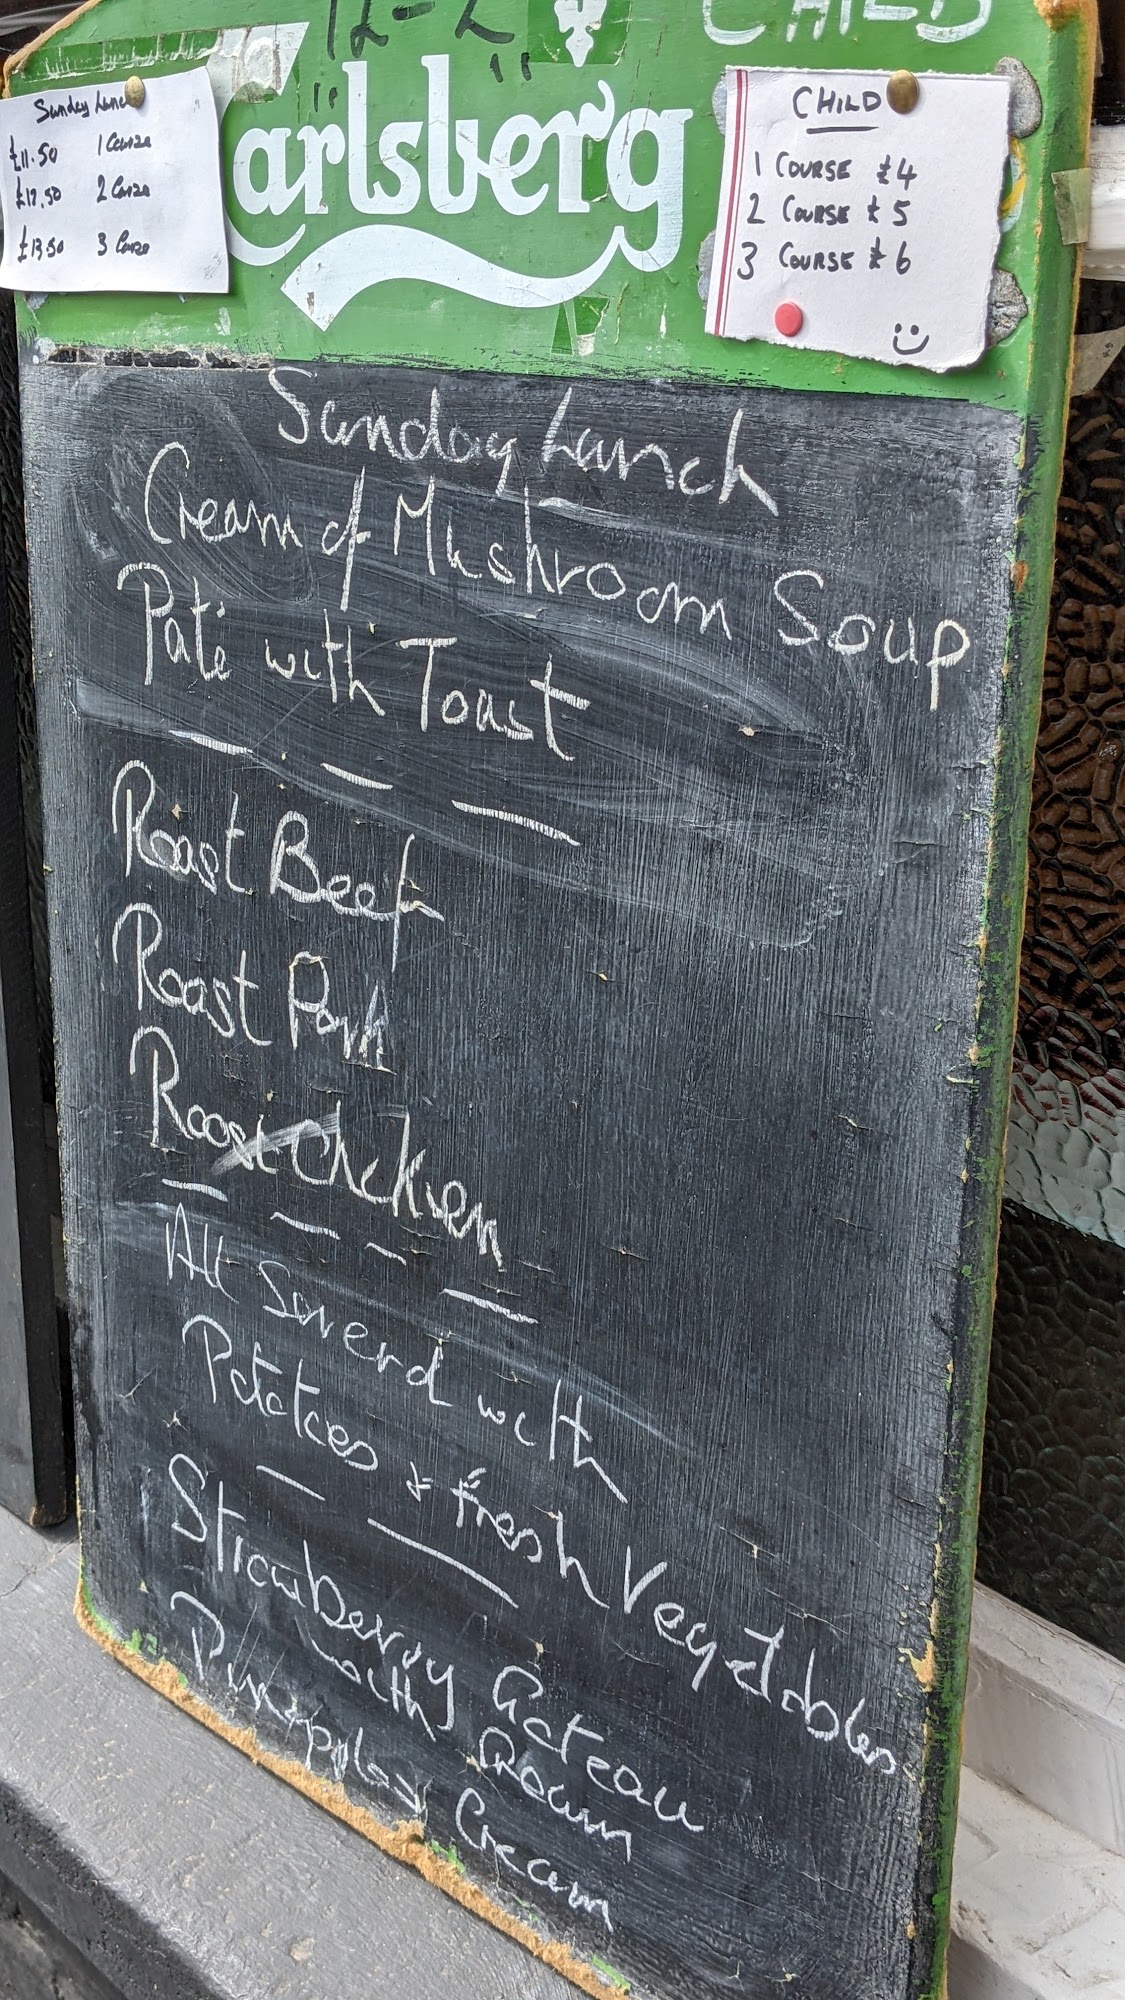 12-2
CHILD
Carlsberg
Sunday Lunch
£11.50 1 Course
£12.50 2 Course
£13.50 3 Course
CHILD
1 COURSE £4
2 COURSE £5
3 COURSE £6
Sunday Lunch
Cream of Mushroom Soup
Paté with Toast
Roast Beef
Roast Pork
Roast Chicken
All Severd with
Potatoes & fresh Vegetables
Strawberry Gateau
with Cream
Cream